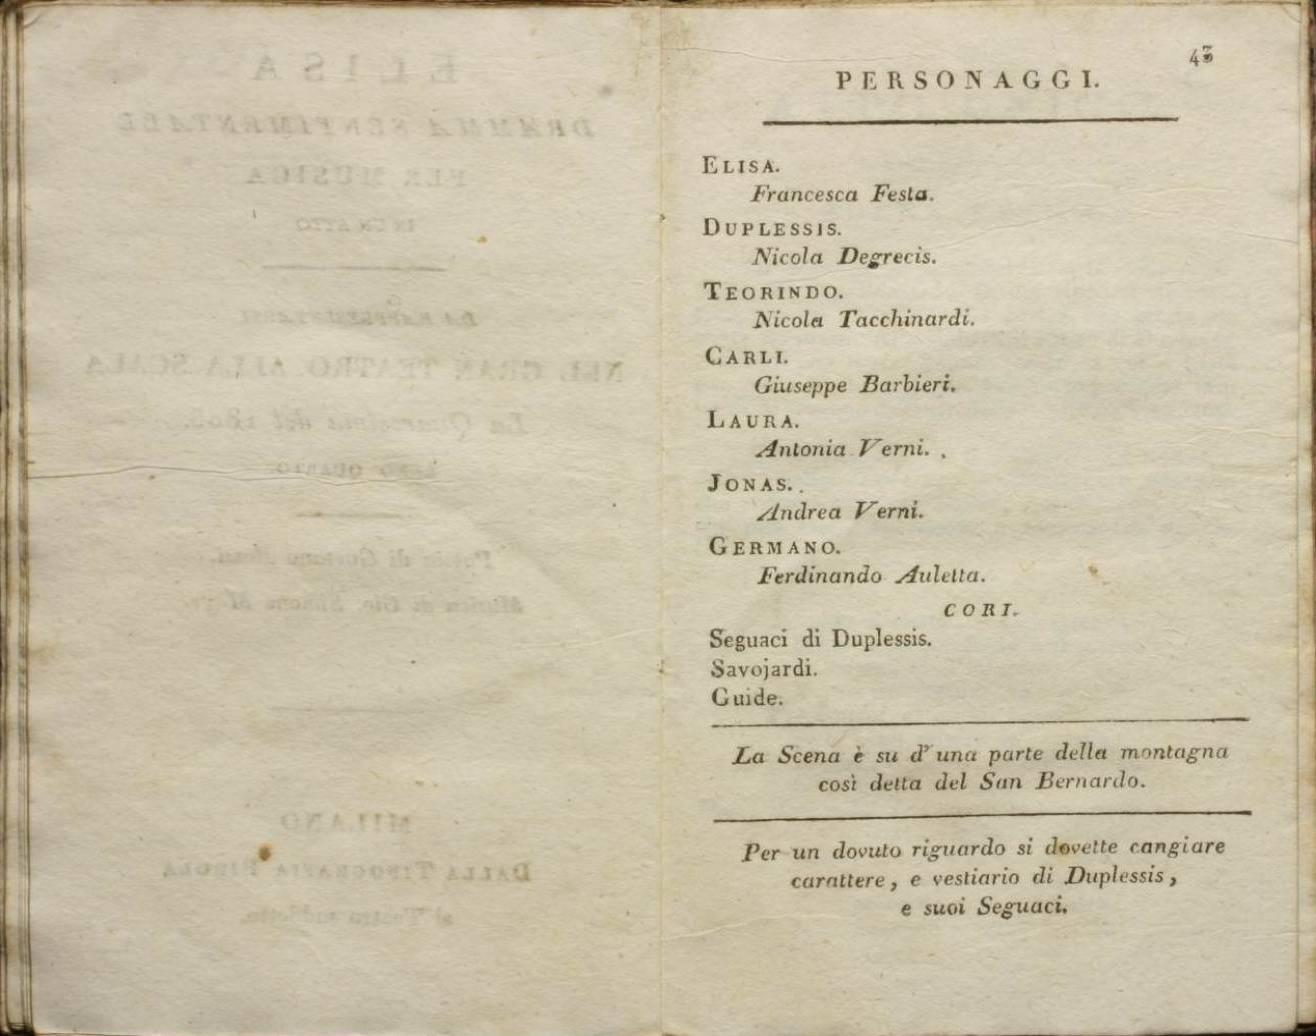 43
PERSONAGGI.
ELISA.
Francesca Festa.
DUPLESSIS.
Nicola Degrecis.
TEORINDO.
Nicola Tacchinardi.
CARLI.
Giuseppe Barbieri.
LAURA.
Antonia Verni.
JONAS.
Andrea Verni.
GERMANO.
Ferdinando Auletta.
CORI.
Seguaci di Duplessis.
Savojardi.
Guide.
La Scena è su d'una parte della montagna
così detta del San Bernardo.
Per un dovuto riguardo si dovette cangiare
carattere, e vestiario di Duplessis,
e suoi Seguaci.